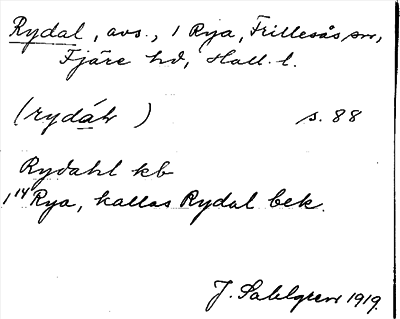 Rydal, avs., 1 Rya, Frillesås sn,
Fjäre hd, Hall. l.
(rydáɫ) s. 88
Rydahl kb
1/14 Rya, kallas Rydal bek.
J. Sahlgren 1919.